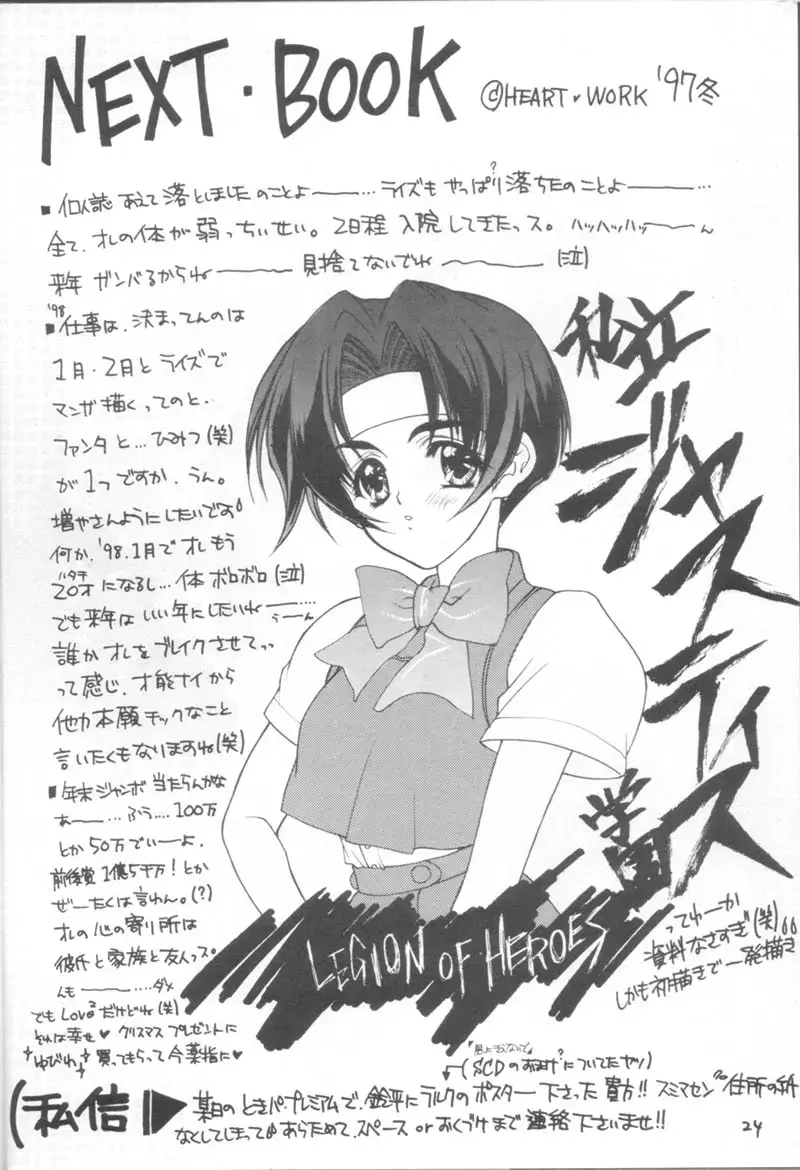 NEXT・BOOK
©HEART♥WORK '97冬
■個人誌 あえて落としましたのことよ———…ライズもやっぱり?落ちたのことよ———…
全て、オレの体が弱っちいせい。2日程 入院してきたっス。ハッハッハッ———ん
来年 ガンバるからね———見捨てないでね———(泣)
'98
■仕事は、決まってんのは
1月・2月と ライズで
マンガ描くってのと、
ファンタと…ひみつ(笑)
が1つですか、うん。
増やさんようにしたいです
何か、'98.1月で オレもう
ハタチ
20才になるし…体 ボロボロ(泣)
でも来年は いい年にしたいね———…
うーん
誰か オレを ブレイクさせてっ
って感じ、才能ナイから
他力本願チックなこと
言いたくもなりますね(笑)
■年末ジャンボ 当たらんかな
あ———…ふう….100万
とか 50万でいーよ、
前後賞 1億5千万!とか
ぜーたくは言わん。(?)
オレの心の寄り所は
彼氏と家族と友人っス。
んも———…ダメ
でも Love²だけどね(笑)
それは幸せ♥ クリスマス プレゼントに
ゆびわ 買ってもらって 今薬指に♥
私立
ジャスティス
学園
LEGION OF HEROES
ってゆーか
資料なさすぎ(笑)
しかも初描きで一発描き
(SCDのおまけ?についてたヤツ)
(私信▶ 某日の ときパ・プレミアムで、鈴平に ラルクの ポスター 下さった 貴方!! スミマセン 住所の紙
なくしてしまって あらためて、スペース or おくづけまで 連絡 下さいませ!!
24